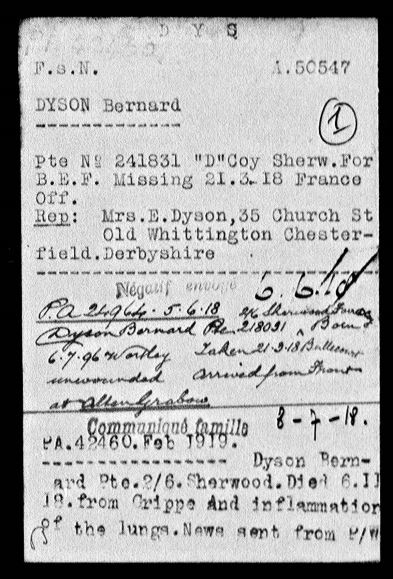 D Y S
F.s.N. A.50547
DYSON Bernard
1
Pte Nº 241831 "D"Coy Sherw.For
B.E.F. Missing 21.3.18 France
Off.
Rep: Mrs.E.Dyson,35 Church St
Old Whittington Chester-
field.Derbyshire
Négatif envoyé 6.6.18
P.A 24964. 5.6.18 2/6 Sherwood
Dyson Bernard Pte 218031 Born
6.7.96 Wortley Taken 21.3.18 Bullecourt
unwounded arrived from
at Alten Grabow
Communiqué famille 8-7-18.
PA.42460.Feb 1919.
Dyson Bern-
ard Pte.2/6.Sherwood.Died 6.11
18.from Grippe And inflammation
of the lungs.News sent from P/W